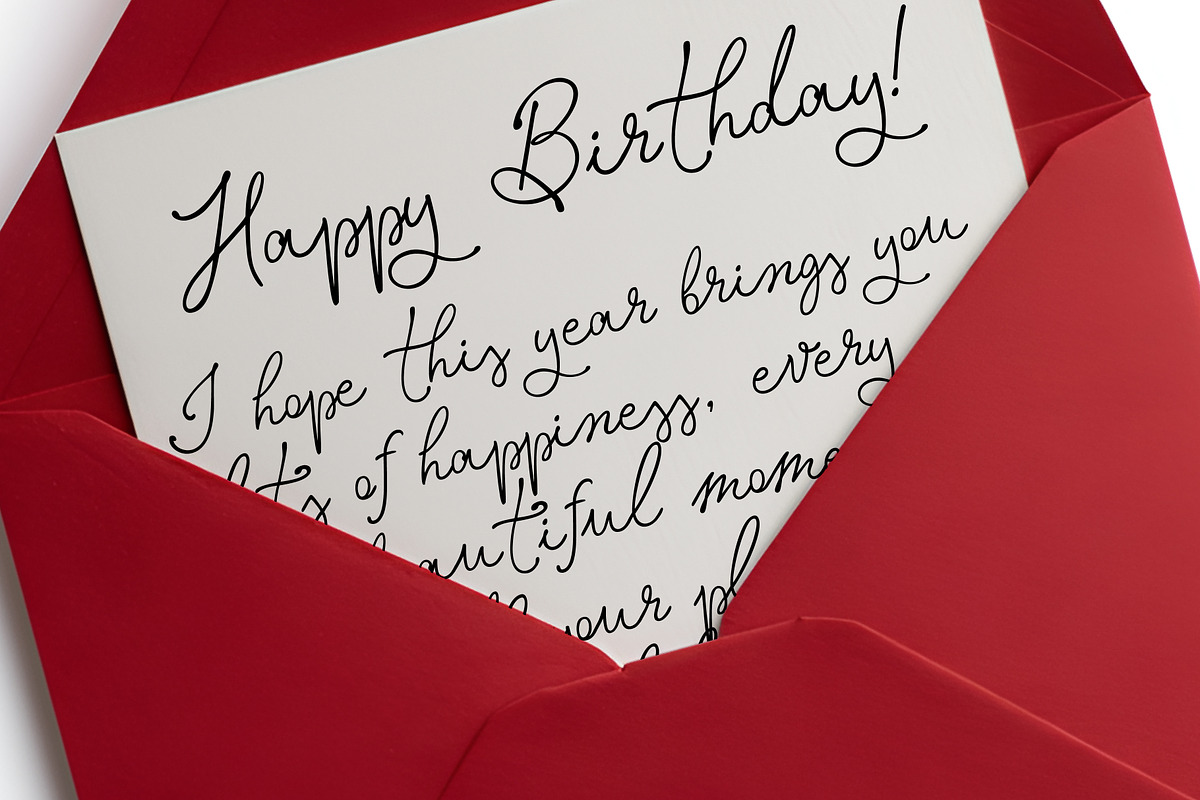 Happy Birthday!
I hope this year brings you
of happiness, every
mome
your